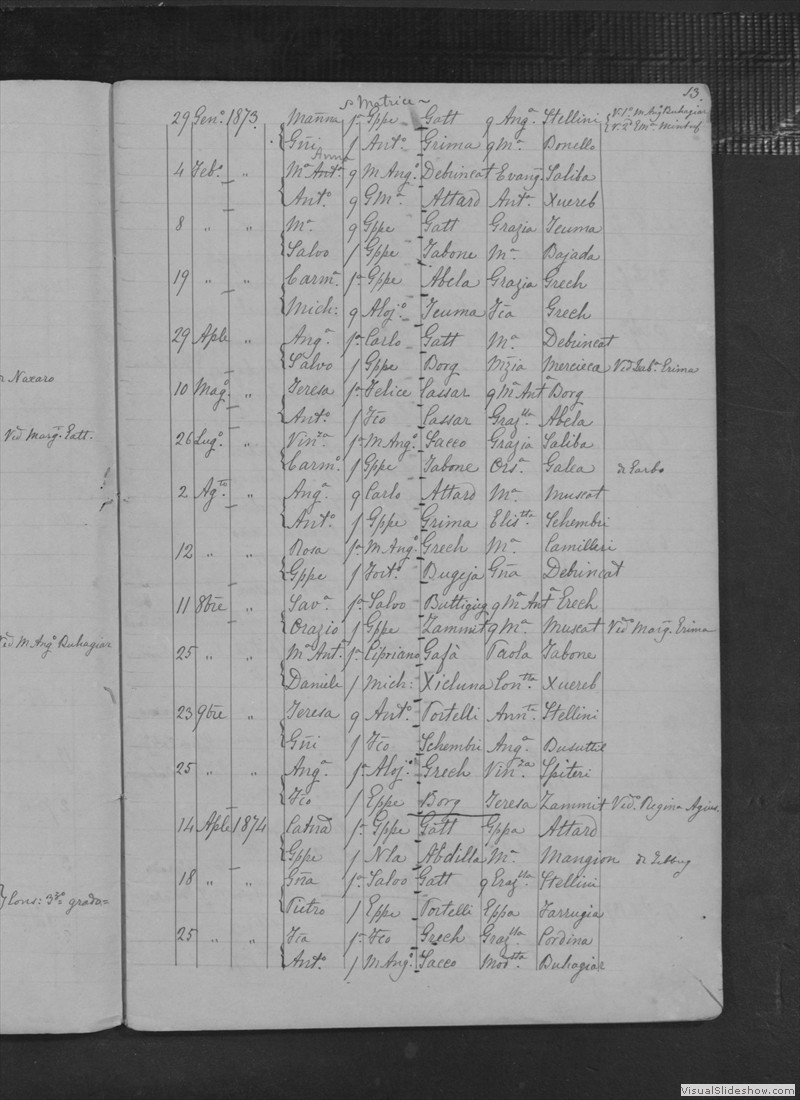 13.
Matrice
29 Geno. 1873 Mañna f Gppe Gatt q Anga Stellini
Giri f Anto Grima q Ma Bonello
Anna
4 Febo „ Ma Anta q M Ango Debrincat Evang Saliba
Anto q G Ma Attard Anta Xuereb
8 „ „ Ma q Gppe Gatt Grazia Teuma
Salvo f Gppe Tabone Ma Bajada
19 „ „ Carma f Gppe Abela Grazia Grech
Mich: q Alojo Teuma Fca Grech
29 Aple „ Anga f Carlo Gatt Ma Debrincat
Salvo f Gppe Borg Mercieca
10 Mago „ Teresa f Felice Cassar q Ma Anta Borg
Anto f Fco Cassar Grazlla Abela
26 Lugo „ Vinza f M Ango Sacco Grazia Saliba
Carmo f Gppe Tabone Orsa Galea
2 Agto „ Anga q Carlo Attard Ma Muscat
Anto f Gppe Grima Elistta Schembri
12 „ „ Rosa f M Ango Grech Ma Camilleri
Gppe f Forto Bugeja Gña Debrincat
11 8bre „ Sava f Salvo Buttigieg q Ma Anta Grech
Orazio f Gppe Zammit q Ma Muscat Vido Marg Grima
25 „ „ Ma Anta f Cipriano Gafà Paola Tabone
Daniele f Mich: Xicluna Contta Xuereb
23 9bre „ Teresa q Anto Portelli Annta Stellini
Giri f Fco Schembri Anga Busuttil
25 „ „ Anga f Alojo Grech Vinza Spiteri
Fco f Gppe Borg Teresa Zammit Vido Regina Agius
14 Aple 1874 Catna f Gppe Gatt Gppa Attard
Gppe f Nla Abdilla Ma Mangion
18 „ „ Gña f Salvo Gatt q Grazlla Stellini
Pietro f Gppe Portelli Gppa Farrugia
25 „ „ Fca f Fco Grech Grazlla Cordina
Anto f M Ango Sacco Modtta Buhagiar
Naxaro
Vido Marg Gatt.
Vido M Ango Buhagiar
Cons: grada=
VisualSlideshow.com